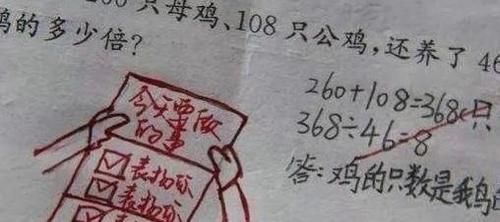 只母鸡、108 只公鸡,还养了 46
的多少倍?
260+108=368(只
368÷46=8
答:鸡的只数是我
今天要做
的事
☑表扬你
☑表扬你
表扬你